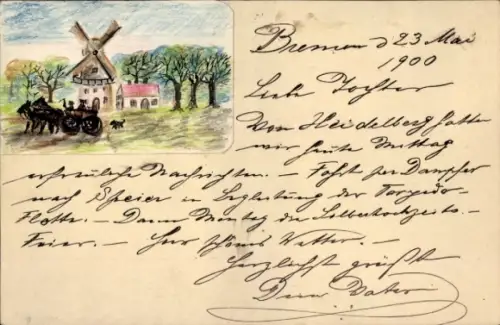 Bremen d 23 Mai
1900
Liebe Tochter
Von Heidelberg hatten
wir heute Mittag
erfreuliche Nachrichten. — Fährt per Dampfer
nach Speier in Begleitung der Torpedo-
Flotte. — Dann Montag die Silberhochzeits-
Feier. — Hier schönes Wetter. —
Herzlichst grüßt
Dein Vater